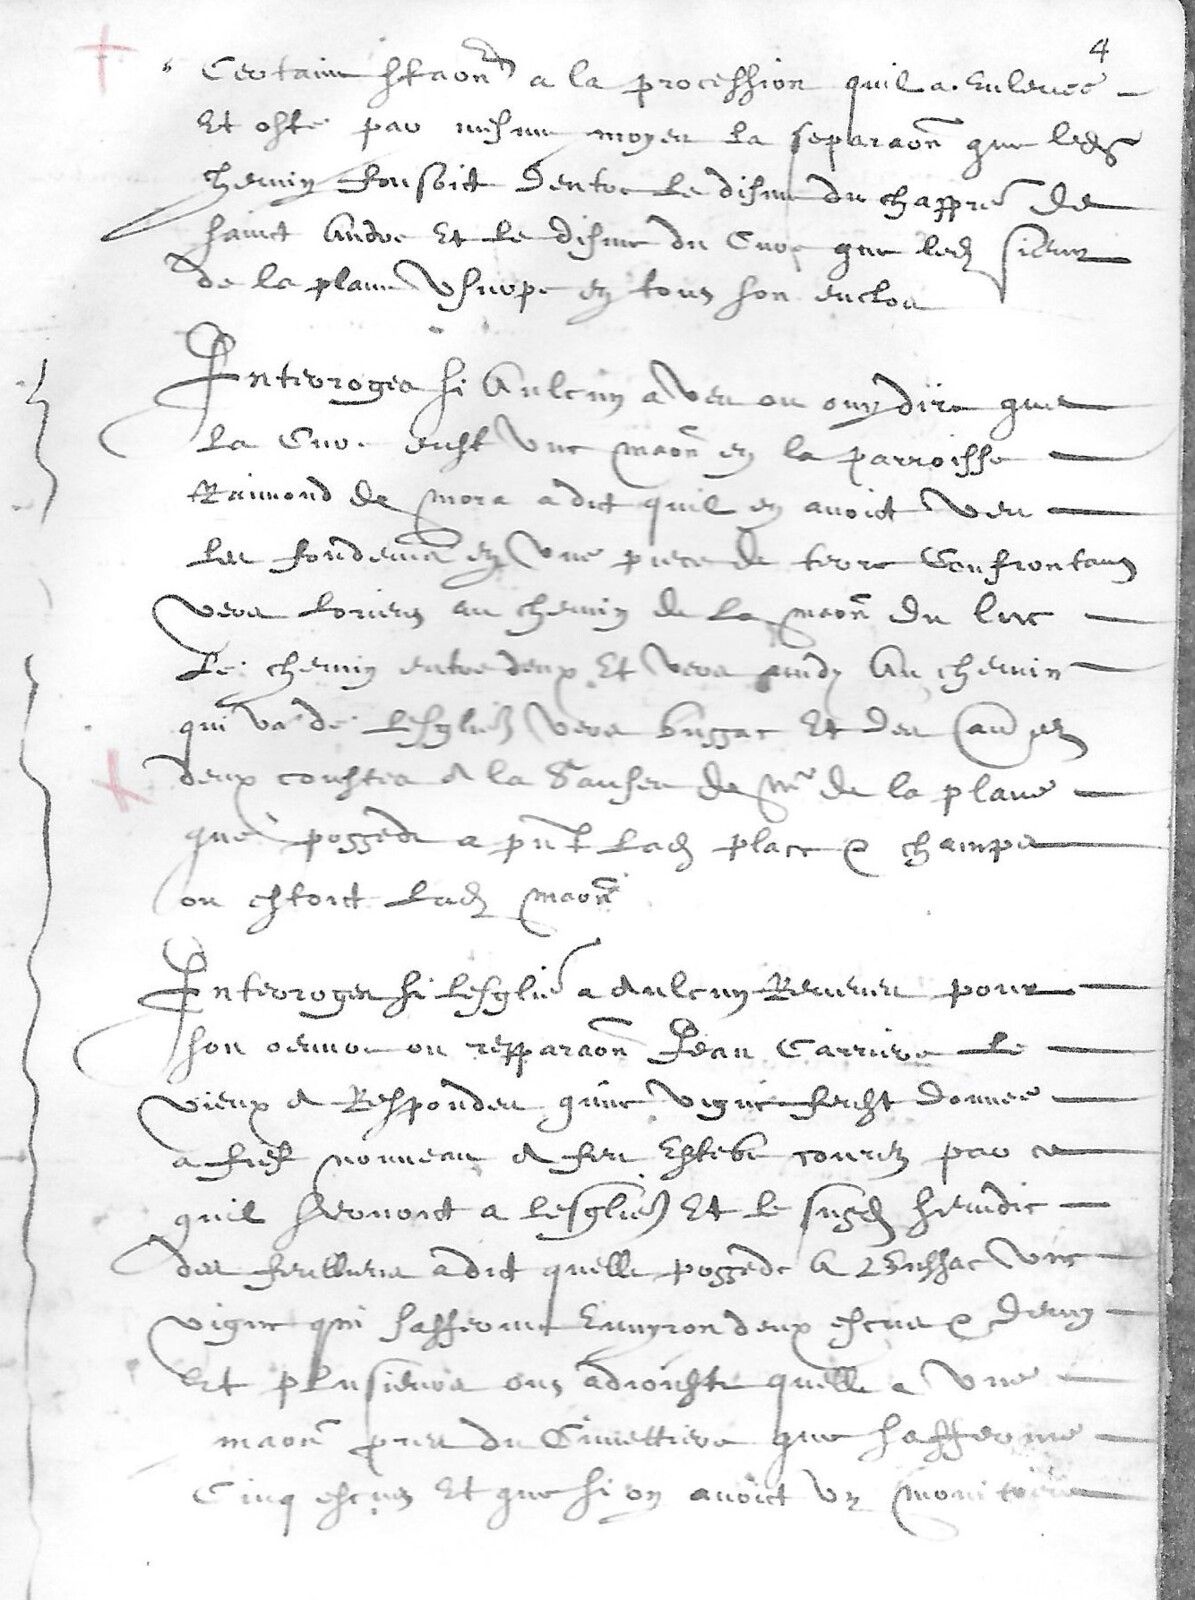 4
Certaine staon a la procession quil a enlevée
Et osté par mesme moyen la separaon que led
chemin faisoit dentre le disme du chappre de
sainct Andre Et le disme du Cure que led sieur
de la plane Usurpe en tout son enclos
Interroges si Aulcun a veu ou ouy dire que
la Cure eust une maon en la parroisse
Raimond de mora a dit quil en avoict veu
les fondemens en une piece de terre Confrontant
vers lorient au chemin de la maon du luc
Le chemin entre deux Et vers midy Au chemin
qui va de lesglise vers bussac Et des
deux coustes a la de Mr de la plane
que possede a pnt lad place & champs
ou estoit lad maon
Interroges si lesglise a Aulcun Revenu pour
son oeuvre ou repparaon Jean Carriere le
vieux a Respondu qune vigne feust donnee
a fief nouveau a feu Estebe par ce
quil servoit a lesglise Et le susd sindic
des a dit quelle possede A Bussac une
vigne qui safferme Environ deux escus & demy
Et plusieurs ont adiousté quelle a une
maon pres du Cimettiere que safferme
Cinq escus Et que si on avoict un monitoire